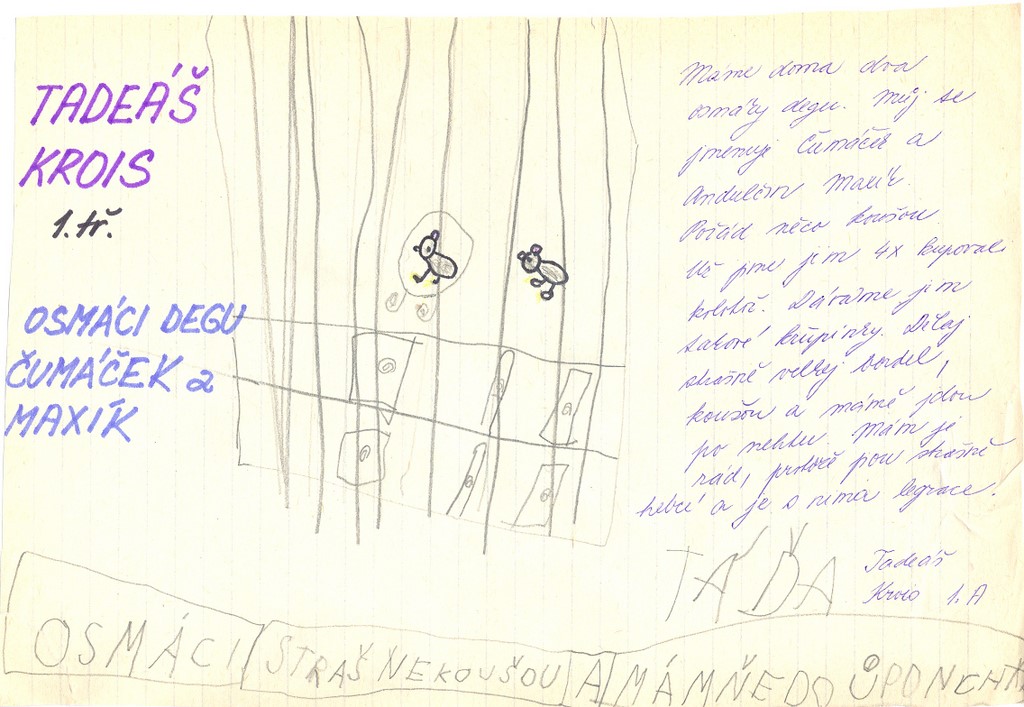 TADEÁŠ
KROIS
1. tř.
OSMÁCI DEGU
ČUMÁČEK a
MAXÍK
Máme doma dva
osmáky degu. Můj se
jmenuje Čumáček a
Andulčin Maxík.
Pořád něco koušou
Už jsme jim 4x kupovali
kolotoč. Dáváme jim
takové křupinky. Dělaj
strašně velkej bordel,
koušou a mámě jdou
po nehtu. Mám je
rád, protože jsou strašně
hebcí a je s nima legrace.
Tadeáš
Krois 1.A
TÁĎA
OSMÁCI STRAŠNEKOUŠOU A MÁMŇEDO